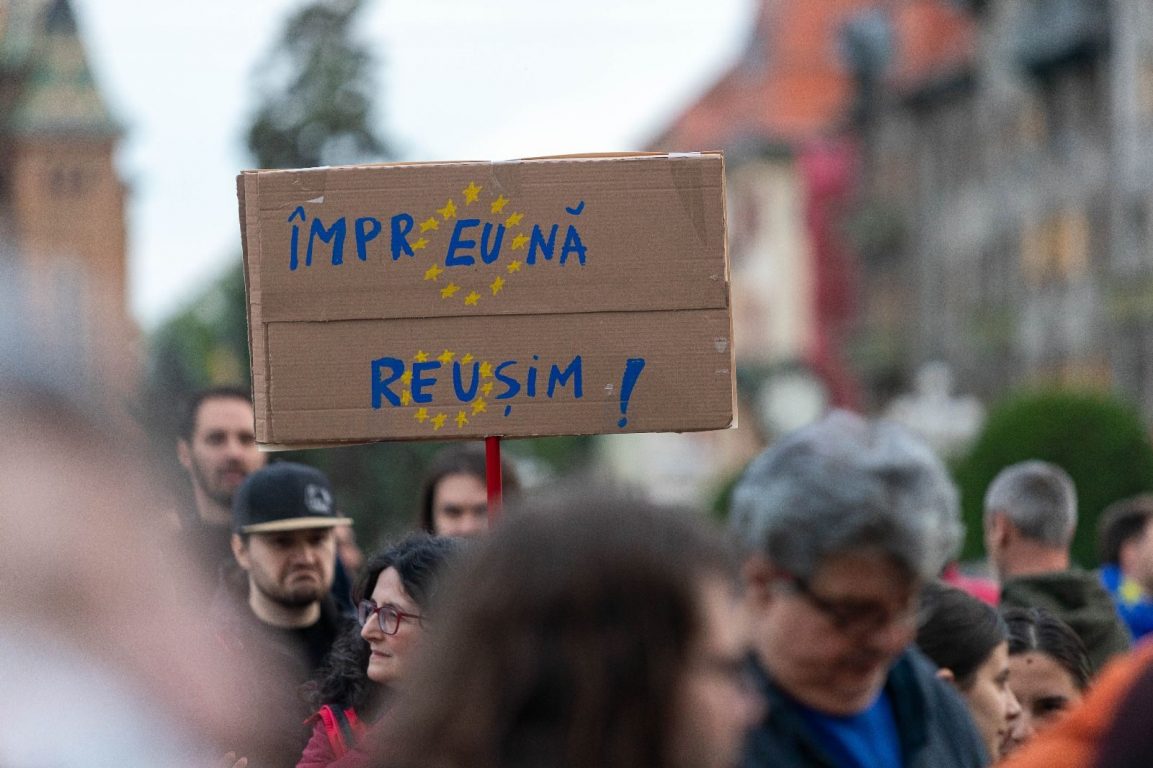 ÎMPREUNĂ
REUȘIM !